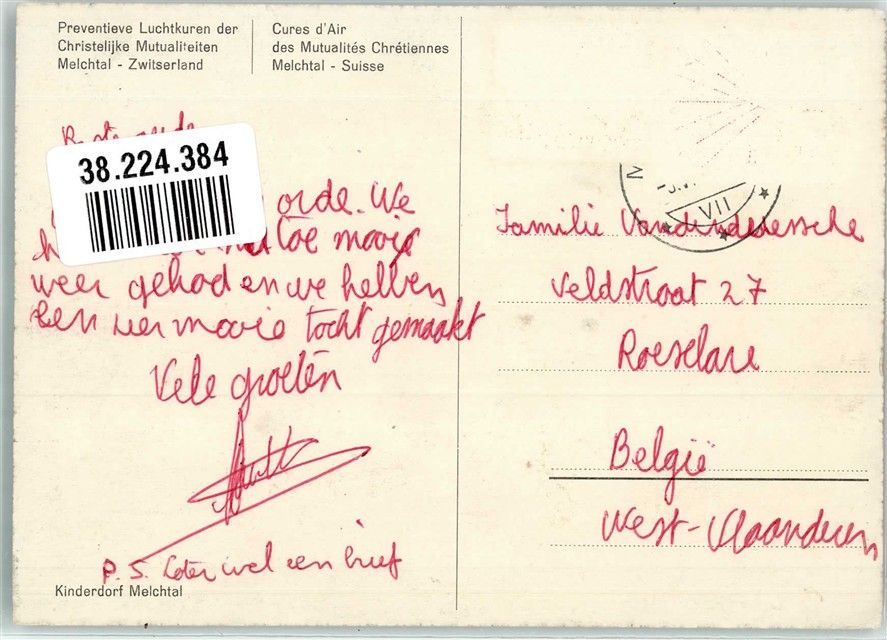 Preventieve Luchtkuren der
Christelijke Mutualiteiten
Melchtal - Zwitserland
Cures d'Air
des Mutualités Chrétiennes
Melchtal - Suisse
38.224.384
orde. We
toe mooi
weer gehad en we hebben
een zeer mooie tocht gemaakt
Vele groeten
P.S. Later wel een brief
Kinderdorf Melchtal
VII
Familie
Veldstraat 27
Roeselare
België
West-Vlaanderen